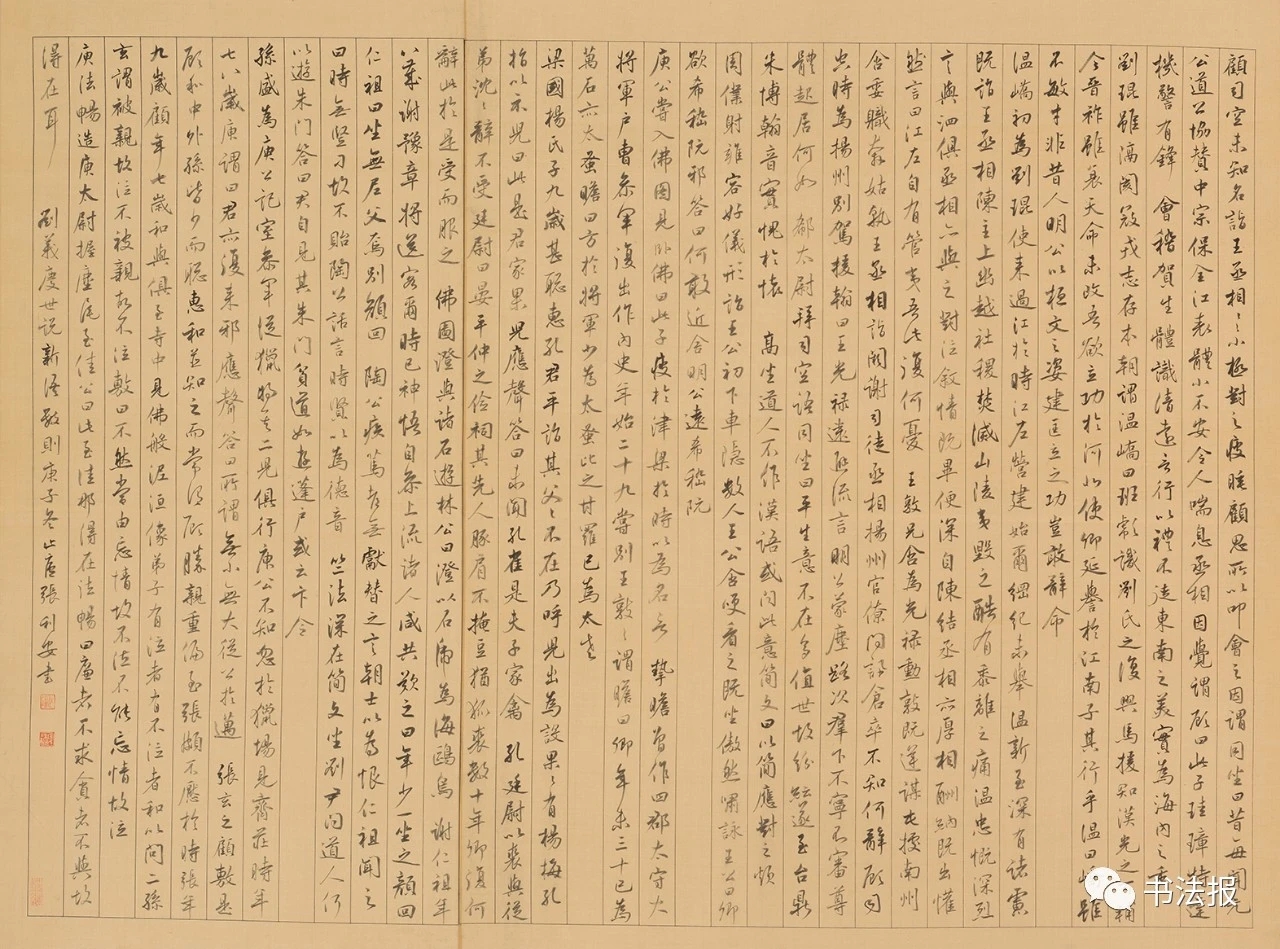 顧司空未知名詣王丞相〻小極對之疲睡顧思所以叩會之因謂同坐曰昔每聞元
公道公協贊中宗保全江表體小不安令人喘息丞相因覺謂顧曰此子珪璋特達
機警有鋒 會稽賀生體識清遠言行以禮不徒東南之美實為海內之秀
劉琨雖隔閡寇戎志存本朝謂溫嶠曰班彪識劉氏之復興馬援知漢光之可輔
今晉祚雖衰天命未改吾欲立功於河北使卿延譽於江南子其行乎溫曰嶠雖
不敏才非昔人明公以桓文之姿建匡立之功豈敢辭命
溫嶠初為劉琨使來過江於時江左營建始爾綱紀未舉溫新至深有諸慮
既詣王丞相陳主上幽越社稷焚滅山陵夷毀之酷有黍離之痛溫忠慨深烈
言與泗俱丞相亦與之對泣敘情既畢便深自陳結丞相亦厚相酬納既出懽
然言曰江左自有管夷吾此復何憂 王敦兄含為光祿勳敦既逆謀屯據南州
含委職奔姑孰王丞相詣闕謝司徒丞相揚州官僚問訊倉卒不知何辭顧司
空時為揚州別駕援翰曰王光祿遠避流言明公蒙塵路次羣下不寧不審尊
體起居何如 郗太尉拜司空語同坐曰平生意不在多值世故紛紜遂至台鼎
朱博翰音實愧於懷 高坐道人不作漢語或問此意簡文曰以簡應對之煩
周僕射雍容好儀形詣王公初下車隱數人王公含笑看之既坐傲然嘯詠王公曰卿
欲希嵇阮邪答曰何敢近舍明公遠希嵇阮
庾公嘗入佛圖見臥佛曰此子疲於津梁於時以為名言 摯瞻曾作四郡太守大
將軍戶曹參軍復出作內史年始二十九嘗別王敦〻謂瞻曰卿年未三十已為
萬石亦太蚤瞻曰方於將軍少為太蚤比之甘羅已為太老
梁國楊氏子九歲甚聰惠孔君平詣其父〻不在乃呼兒出為設果〻有楊梅孔
指以示兒曰此是君家果兒應聲答曰未聞孔雀是夫子家禽 孔廷尉以裘與從
弟沈〻辭不受廷尉曰晏平仲之儉祠其先人豚肩不掩豆猶狐裘數十年卿復何
辭此於是受而服之 佛圖澄與諸石遊林公曰澄以石虎為海鷗鳥 謝仁祖年
八歲謝豫章將送客爾時已神悟自參上流諸人咸共歎之曰年少一坐之顏回
仁祖曰坐無尼父焉別顏回 陶公疾篤都無獻替之言朝士以為恨仁祖聞之
曰時無竪刁故不貽陶公話言時賢以為德音 竺法深在簡文坐劉尹問道人何
以遊朱門答曰君自見其朱門貧道如遊蓬戶或云卞令
孫盛為庾公記室參軍從獵將其二兒俱行庾公不知忽於獵場見齊莊時年
七八歲庾謂曰君亦復來邪應聲答曰所謂無小無大從公於邁 張玄之顧敷是
顧和中外孫皆少而聰惠和並知之而常謂顧勝親重偏至張頗不懕於時張年
九歲顧年七歲和與俱至寺中見佛般泥洹像弟子有泣者有不泣者和以問二孫
玄謂被親故泣不被親故不泣敷曰不然當由忘情故不泣不能忘情故泣
庾法暢造庾太尉握麈尾至佳公曰此至佳那得在法暢曰廉者不求貪者不與故
得在耳
劉義慶世說新語數則庚子冬止唐張利安書
书法报